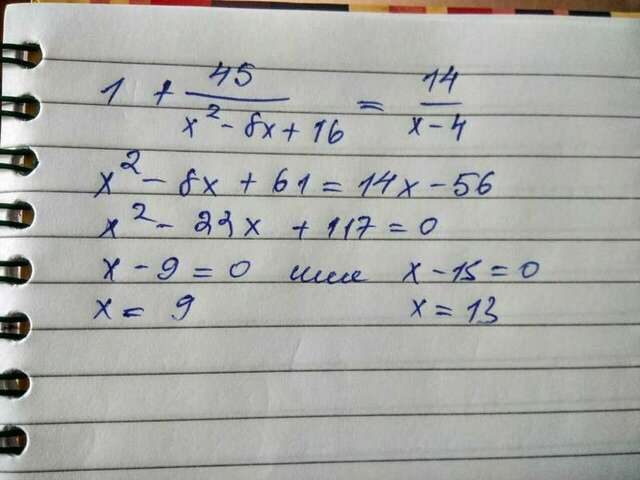 1 + 45 / x² - 8x + 16 = 14 / x - 4
x² - 8x + 61 = 14x - 56
x² - 22x + 117 = 0
x - 9 = 0 или x - 15 = 0
x = 9 x = 13